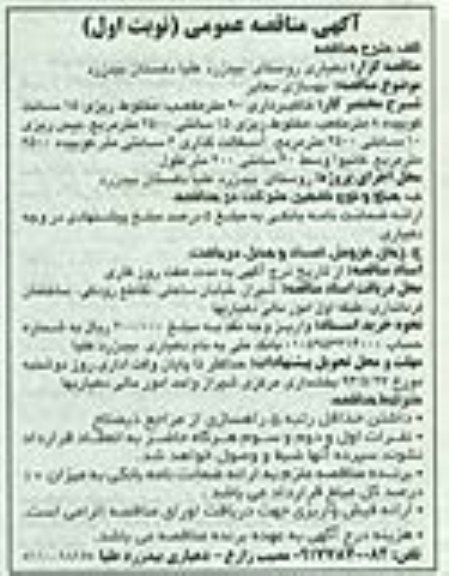 آگهی مناقصه عمومی (نوبت اول)
الف. شرح مناقصه
مناقصه گزار: دهیاری روستای بیدزرد علیا دهستان بیدزرد
موضوع مناقصه: بهسازی معابر
شرح مختصر کار: خاکبرداری ۹۰۰ مترمکعب، مخلوط ریزی ۱۵ سانت
کوبیده مترمکعب، مخلوط ریزی ۱۵ سانتی ۲۵۰۰ مترمربع، بیس ریزی
۱۰ سانتی ۲۵۰۰ مترمربع، آسفالت کاری ۶ سانتی متر کوبیده ۲۵۰۰
مترمربع، کانیوا وسط ۶۰ سانتی ۲۰۰ متر طول
محل اجرای پروژه: روستای بیدزرد علیا دهستان بیدزرد
ب. مبلغ و نوع تضمین شرکت در مناقصه
ارائه ضمانت نامه بانکی به مبلغ ۵ درصد مبلغ پیشنهادی در وجه
دهیاری
ج. زمان فروش اسناد و محل دریافت
اسناد مناقصه: از تاریخ درج آگهی به مدت هفت روز کاری
محل دریافت اسناد مناقصه: شیراز، خیابان ساحلی، تقاطع رودکی، ساختمان
فرمانداری، طبقه اول امور مالی دهیاریها
نحوه خرید اسناد: واریز وجه نقد به مبلغ ریال به شماره
حساب بانک ملی به نام دهیاری بیدزرد علیا
مهلت و محل تحویل پیشنهادات: حداکثر تا پایان وقت اداری روز دوشنبه
مورخ بخشداری مرکزی شیراز واحد امور مالی دهیاریها
شرایط مناقصه
• داشتن حداقل رتبه ۵ راهسازی از مراجع ذیصلاح
• نفرات اول و دوم و سوم هرگاه حاضر به انعقاد قرارداد
نشوند، سپرده آنها ضبط و وصول خواهد شد.
• برنده مناقصه ملزم به ارائه ضمانت نامه بانکی به میزان ۱۰
درصد کل مبلغ قرارداد می باشد.
• ارائه فیش واریزی جهت دریافت اوراق مناقصه الزامی است.
• هزینه درج آگهی به عهده برنده مناقصه می باشد.
تلفن: زارع - دهیاری بیدزرد علیا